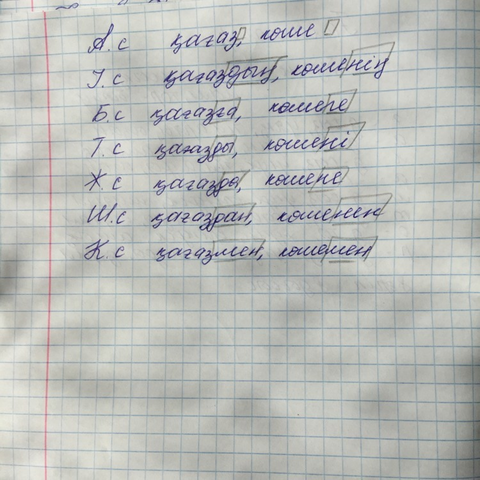 А.с қағаз, көше
І.с қағаздың, көшенің
Б.с қағазға, көшеге
Т.с қағазды, көшені
Ж.с қағазда, көшеде
Ш.с қағаздан, көшенен
К.с қағазмен, көшемен